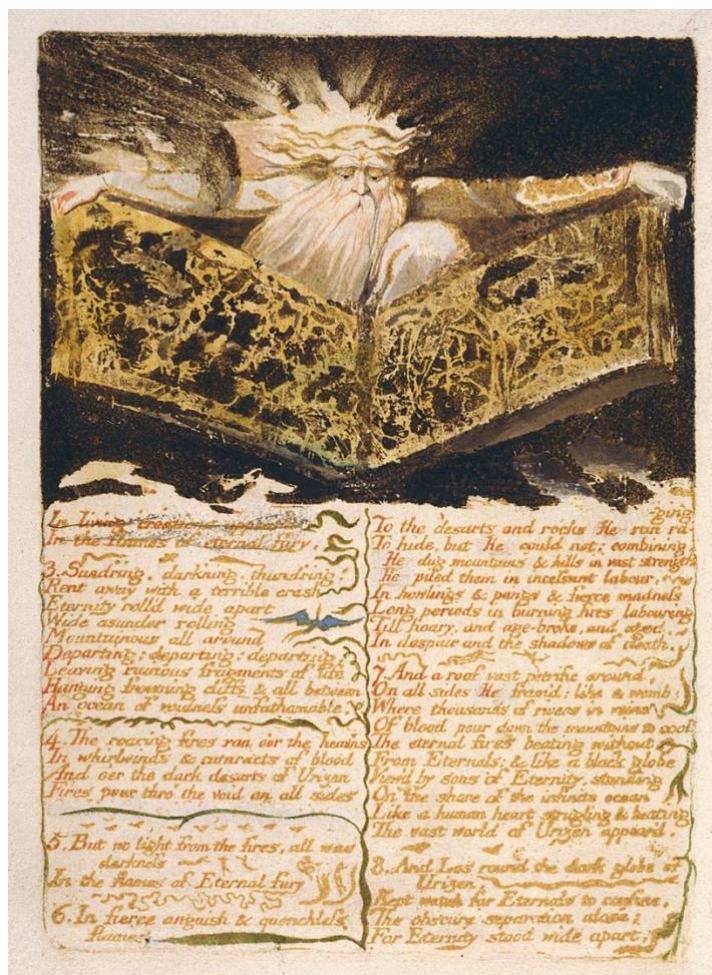 In living creations appear'd
In the flames of eternal fury.
3. Sundring, darkning, thundring!
Rent away with a terrible crash
Eternity rolld wide apart
Wide asunder rolling
Mountainous all around
Departing; departing; departing:
Leaving ruinous fragments of life
Hanging frowning cliffs & all between
An ocean of voidness unfathomable
4. The roaring fires ran oer the heavns
In whirlwinds & cataracts of blood
And oer the dark desarts of Urizen
Fires pour thro' the void on all sides
5. But no light from the fires, all was
darkness
In the flames of Eternal fury
6. In fierce anguish & quenchless
flames
To the desarts and rocks He ran ra-
ging
To hide, but He could not: combining
He dug mountains & hills in vast strength
He piled them in incessant labour,
In howlings & pangs & fierce madness
Long periods in burning fires labouring
Till hoary, and age-broke, and aged,
In despair and the shadows of death.
7. And a roof vast petrific around,
On all sides He fram'd: like a womb;
Where thousands of rivers in veins
Of blood pour down the mountains to cool
The eternal fires beating without
From Eternals; & like a black globe
View'd by sons of Eternity, standing
On the shore of the infinite ocean
Like a human heart strugling & beating
The vast world of Urizen appear'd.
8. And Los round the dark globe of
Urizen,
Kept watch for Eternals to confine,
The obscure separation alone;
For Eternity stood wide apart,